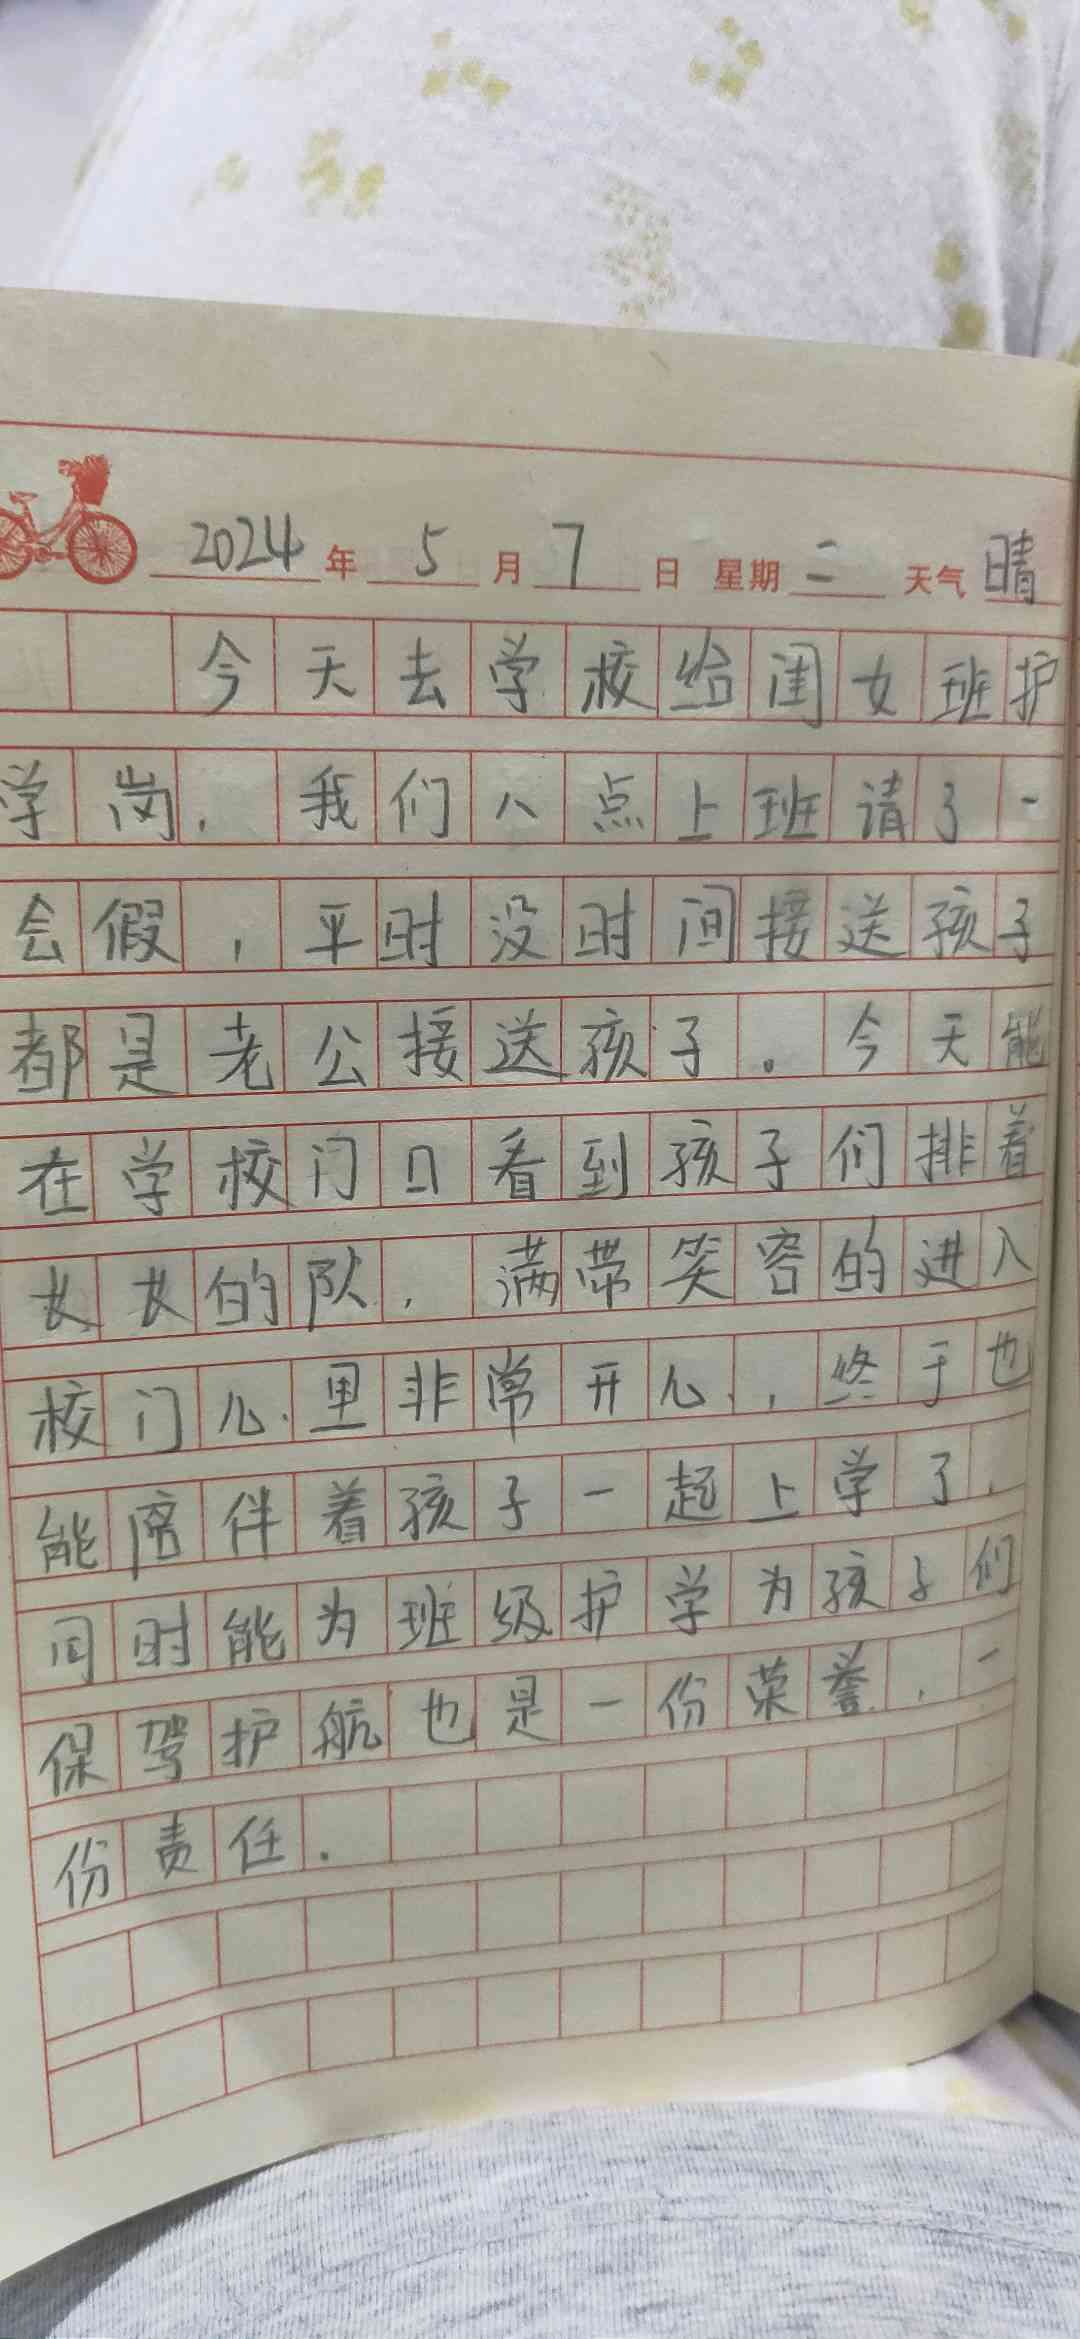 2024年5月7日 星期二 天气晴
今天去学校给闺女班护
学岗，我们八点上班请了一
会假，平时没时间接送孩子
都是老公接送孩子。今天能
在学校门口看到孩子们排着
长长的队，满带笑容的进入
校门心里非常开心，终于也
能陪伴着孩子一起上学了，
同时能为班级护学为孩子们
保驾护航也是一份荣誉，一
份责任.